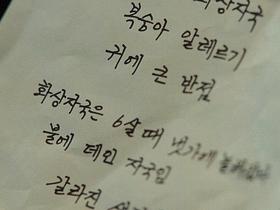 화상자국
복숭아 알레르기
귀에 큰 반점
화상자국은 6살 때 냇가에
불에 데인 자국임
갈라진